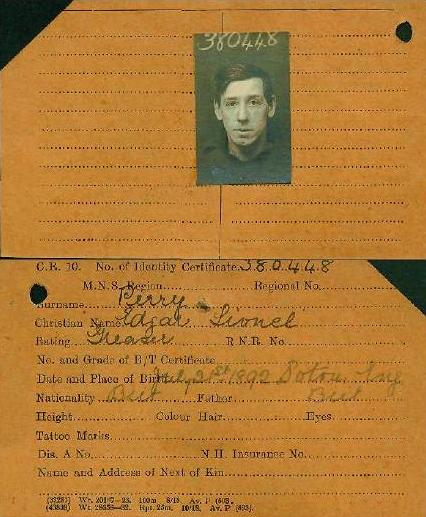 380448
C.R. 10. No. of Identity Certificate 380448
M.N.S. Region Regional No.
Surname Perry
Christian Name Edgar Lionel
Rating Greaser R.N.R. No.
No. and Grade of B/T Certificate
Date and Place of Birth July 21st 1892 Soton Eng
Nationality Brit Father Brit
Height Colour Hair Eyes
Tattoo Marks
Dis. A No. N.H. Insurance No.
Name and Address of Next of Kin
Wt. 100m 8/18. Av. P. (603.
Wt. Rpt. 25m. 10/18. Av. P. (603).